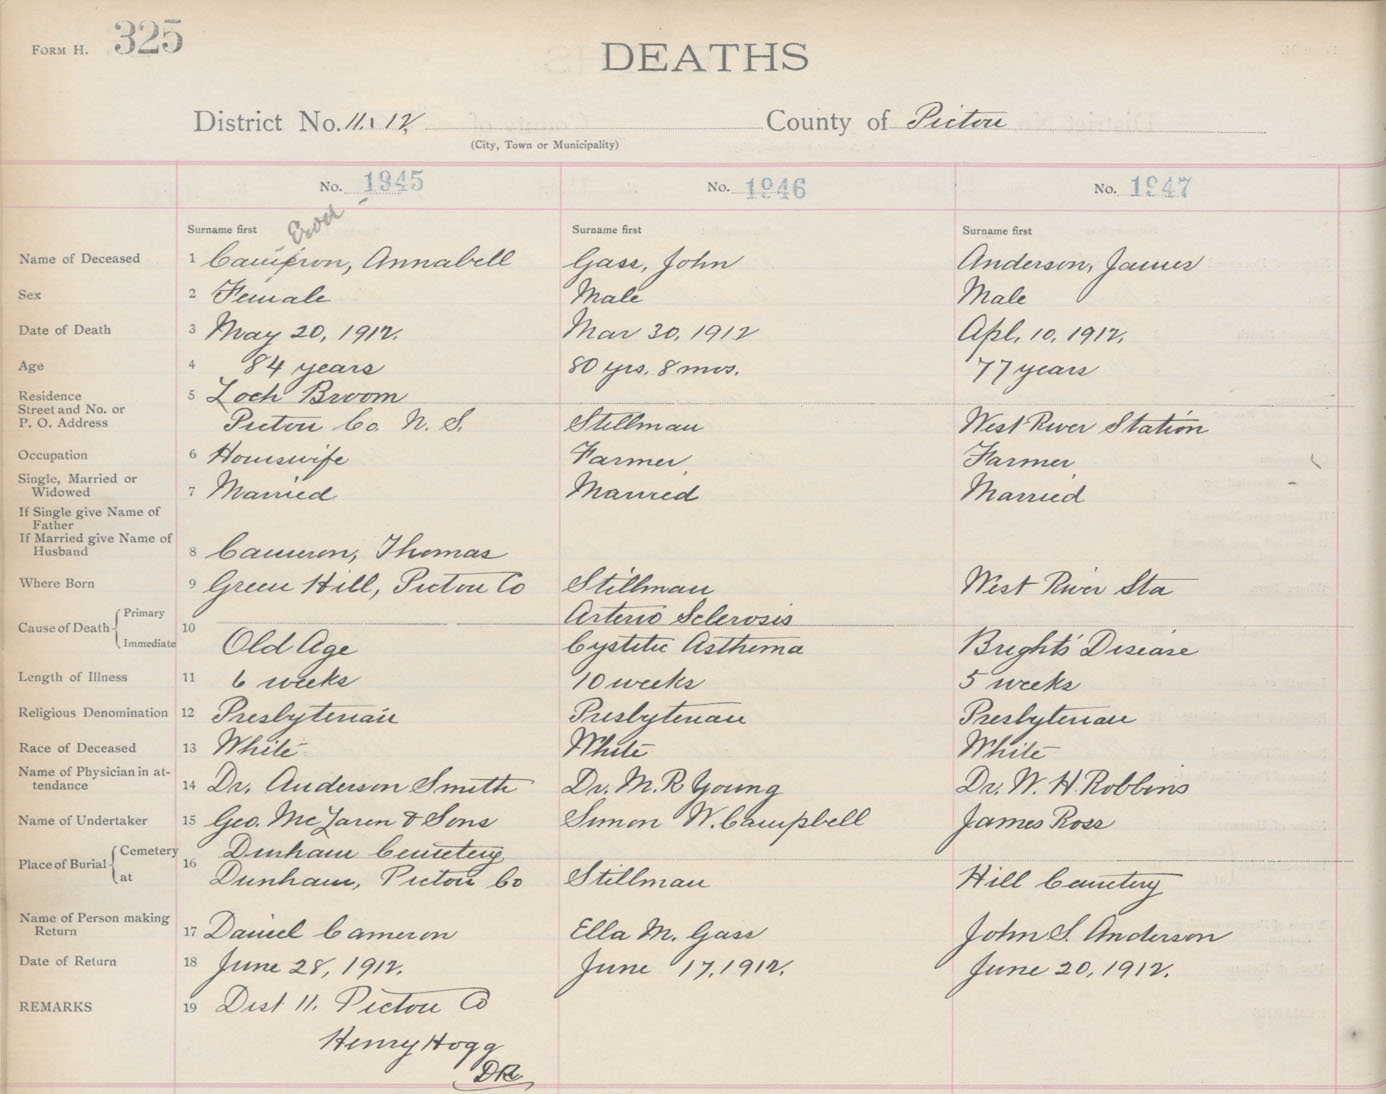 FORM H. 325
DEATHS
District No. 11. 12. County of Pictou
(City, Town or Municipality)
No. 1945 No. 1946 No. 1947
Surname first Surname first Surname first
Name of Deceased 1 Cameron, Annabell Gass, John Anderson, James
Sex 2 Female Male Male
Date of Death 3 May 20, 1912. Mar 30, 1912 Apl. 10, 1912.
Age 4 84 years 80 yrs. 8 mos. 77 years
Residence 5 Loch Broom
Street and No. or
P. O. Address Pictou Co. N. S. Stillman West River Station
Occupation 6 Housewife Farmer Farmer
Single, Married or
Widowed 7 Married Married Married
If Single give Name of
Father
If Married give Name of
Husband 8 Cameron, Thomas
Where Born 9 Green Hill, Pictou Co Stillman West River Sta
Cause of Death Primary 10 Arterio Sclerosis
Immediate Old Age Cystitic Asthema Brights Disease
Length of Illness 11 6 weeks 10 weeks 5 weeks
Religious Denomination 12 Presbyterian Presbyterian Presbyterian
Race of Deceased 13 White White White
Name of Physician in at-
tendance 14 Dr. Anderson Smith Dr. M. R Young Dr. W. H. Robbins
Name of Undertaker 15 Geo. McLaren & Sons Simon W. Campbell James Ross
Place of Burial Cemetery 16 Durham Cemetery
at Durham, Pictou Co Stillman Hill Cemetery
Name of Person making
Return 17 Daniel Cameron Ella M. Gass John S. Anderson
Date of Return 18 June 28, 1912. June 17, 1912. June 20, 1912.
REMARKS 19 Dist 11. Pictou Co
Henry Hogg
DR